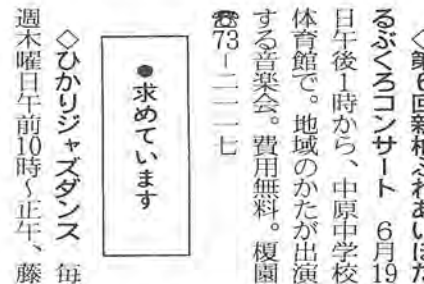 ◇第6回新柏ふれあいほた
るぶくろコンサート　6月19
日午後1時から、中原中学校
体育館で。地域のかたが出演
する音楽会。費用無料。榎園
☎73－二一一七
●求めています
◇ひかりジャズダンス　毎
週木曜日午前10時～正午、藤